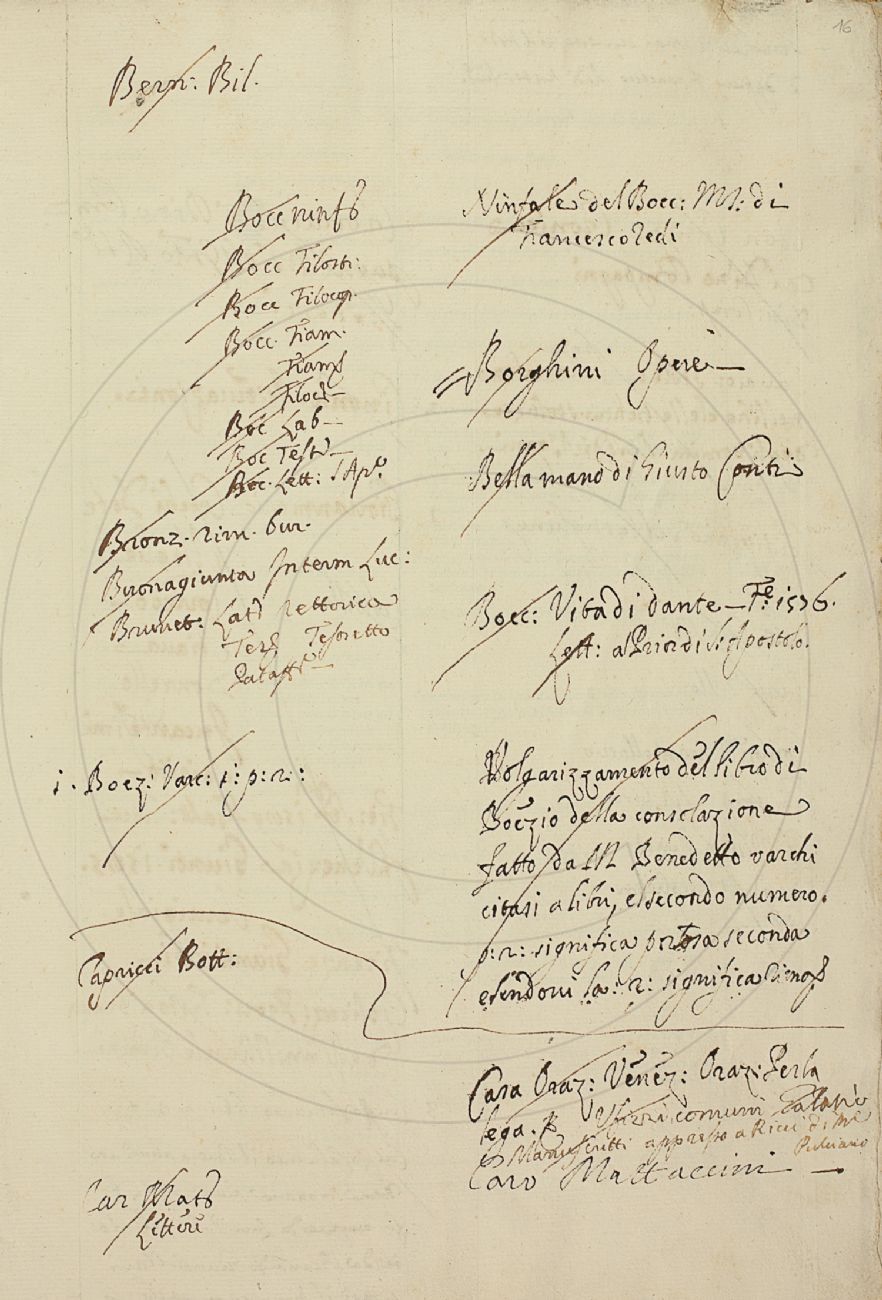 16
Bern: Bil.
Bocc ninf
Bocc Filostr:
Bocc Filocop.
Bocc. Fiam.
Fiam
Filoc
Boc Lab
Boc Test
Boc. Lett: S Ap.
Bronz. rim. bur.
Buonagiunta Interm Luc:
Brunet: Lat rettorica
Tes Tesoretto
Pataff
1. Boez: Varc: 1: p: 2:
Capricci Bott:
Car Matt
Lettere
Ninfale del Bocc: MS: di
Francesco Redi
Borghini Opere
Bella mano di Giusto Conti
Bocc: Vita di dante Fe: 1576.
Lett: a Prior di S. Apostolo.
Volgarizzamento del libro di
Boezio della consolazione
fatto da M Benedetto varchi
citasi a libri, el secondo numero.
p: 2: significa prosa seconda
esendovi la: 2: significa
Cara Oraz: Venez: Oraz: Perla
lega. comuni
Manuscritti appresso a Ricci di M
Pulciano
Caro Mattaccini